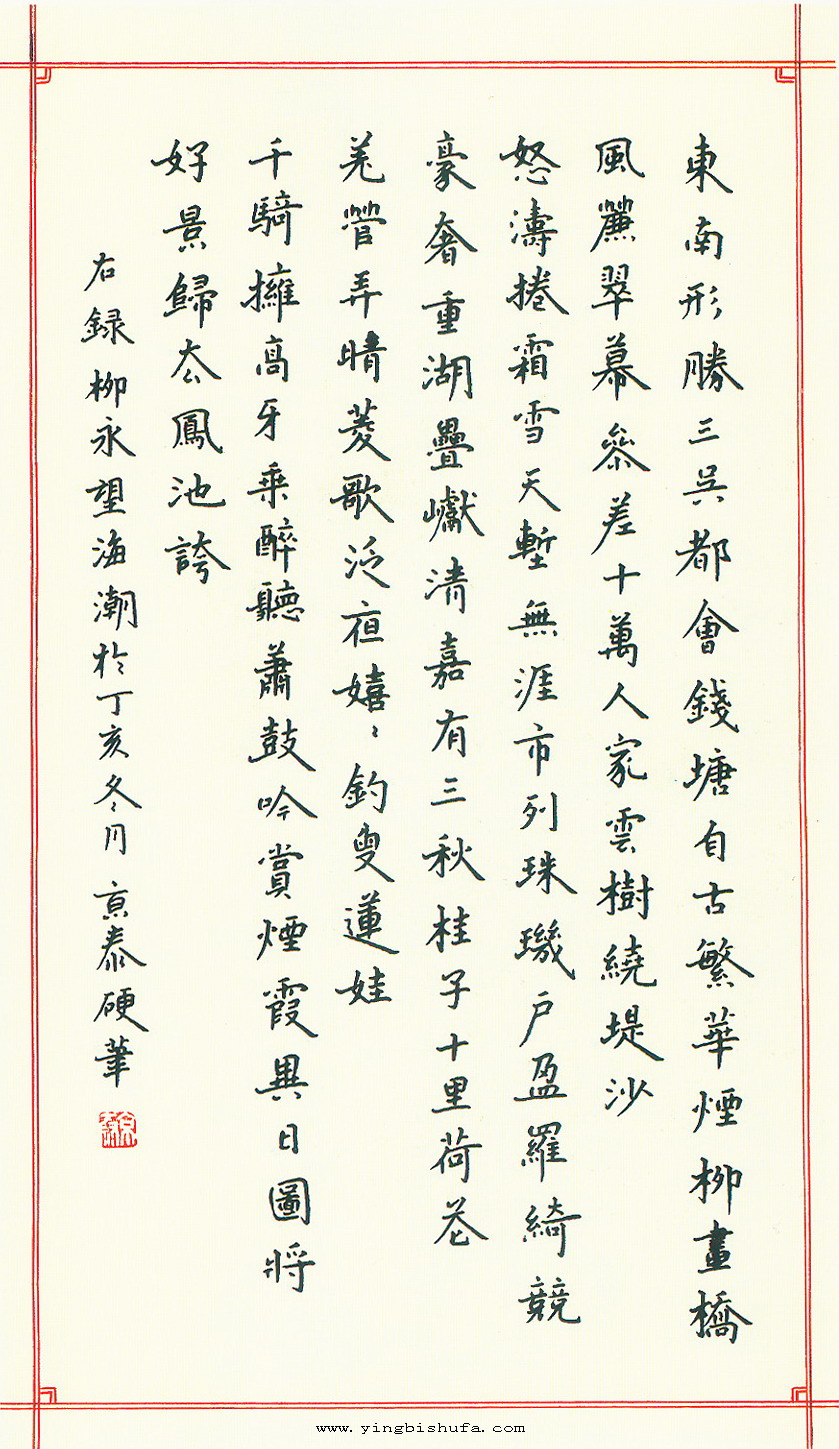 東南形勝三吳都會錢塘自古繁華煙柳畫橋
風簾翠幕參差十萬人家雲樹繞堤沙
怒濤捲霜雪天塹無涯市列珠璣戶盈羅綺競
豪奢重湖疊巘清嘉有三秋桂子十里荷花
羌管弄晴菱歌泛夜嬉嬉釣叟蓮娃
千騎擁高牙乘醉聽蕭鼓吟賞煙霞異日圖將
好景歸去鳳池誇
右録柳永望海潮於丁亥冬月京泰硬筆
www.yingbishufa.com